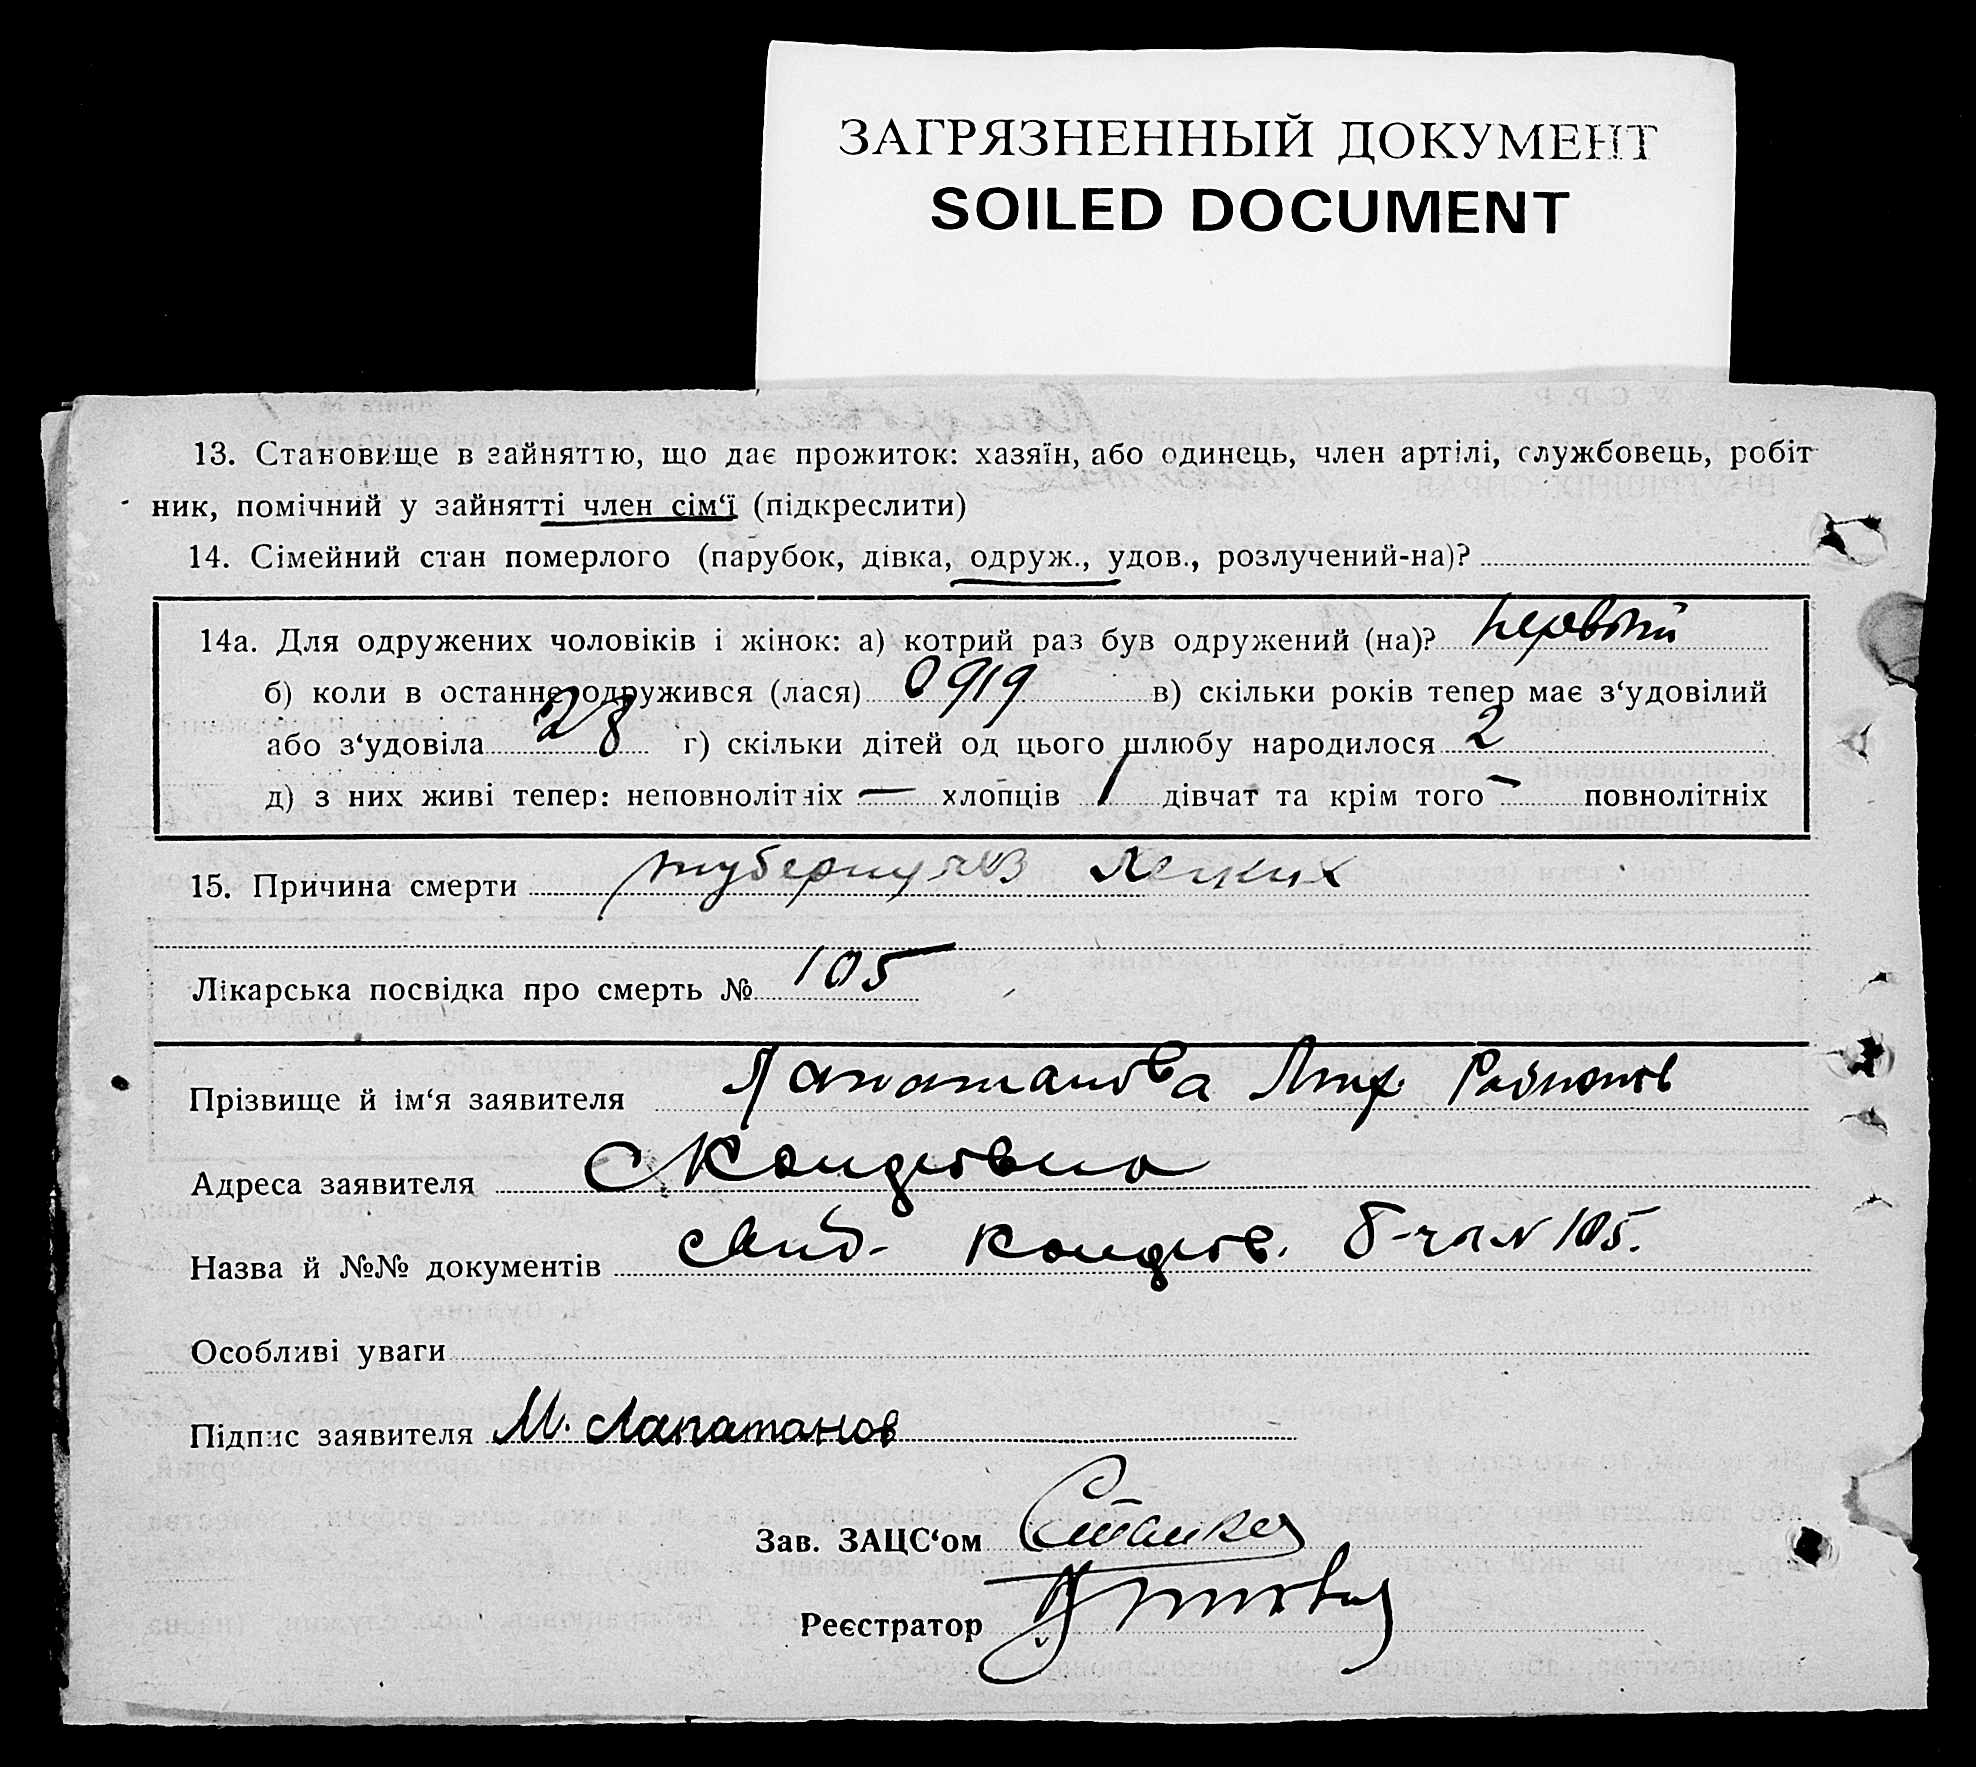 ЗАГРЯЗНЕННЫЙ ДОКУМЕНТ
SOILED DOCUMENT
13. Становище в зайняттю, що дає прожиток: хазяїн, або одинець, член артілі, службовець, робіт
ник, помічний у зайнятті член сім‘ї (підкреслити)
14. Сімейний стан померлого (парубок, дівка, одруж., удов., розлучений-на)?
14а. Для одружених чоловіків і жінок: а) котрий раз був одружений (на)? первый
б) коли в останнє одружився (лася) 0919 в) скільки років тепер має з‘удовілий
або з‘удовіла 28 г) скільки дітей од цього шлюбу народилося 2
д) з них живі тепер: неповнолітніх — хлопців 1 дівчат та крім того – повнолітніх
15. Причина смерти туберкулез легких
Лікарська посвідка про смерть № 105
Прізвище й ім‘я заявителя
Адреса заявителя
Назва й №№ документів 105.
Особливі уваги
Підпис заявителя М. Лапатанов
Зав. ЗАЦС‘ом
Реєстратор